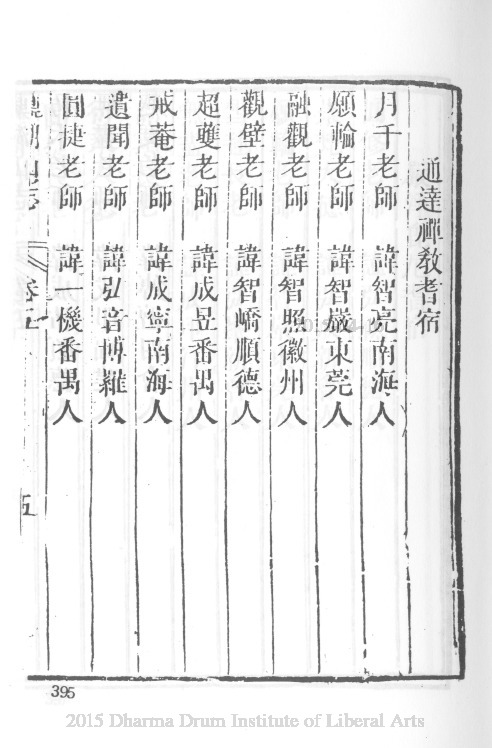 通達禪敎耆宿
月千老師 諱智亮南海人
願輪老師 諱智嚴東莞人
融觀老師 諱智照徽州人
觀壁老師 諱智嶠順德人
超䕶老師 諱成昱番禺人
戒菴老師 諱成寧南海人
遺聞老師 諱弘音博羅人
圓捷老師 諱一機番禺人
鼎湖山志 卷五
五
395
2015 Dharma Drum Institute of Liberal Arts